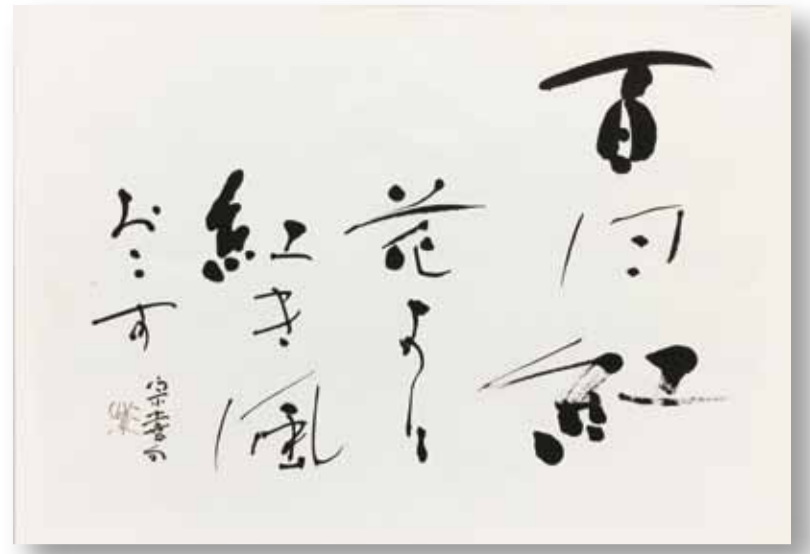 百日紅
花より
紅き風
おこす